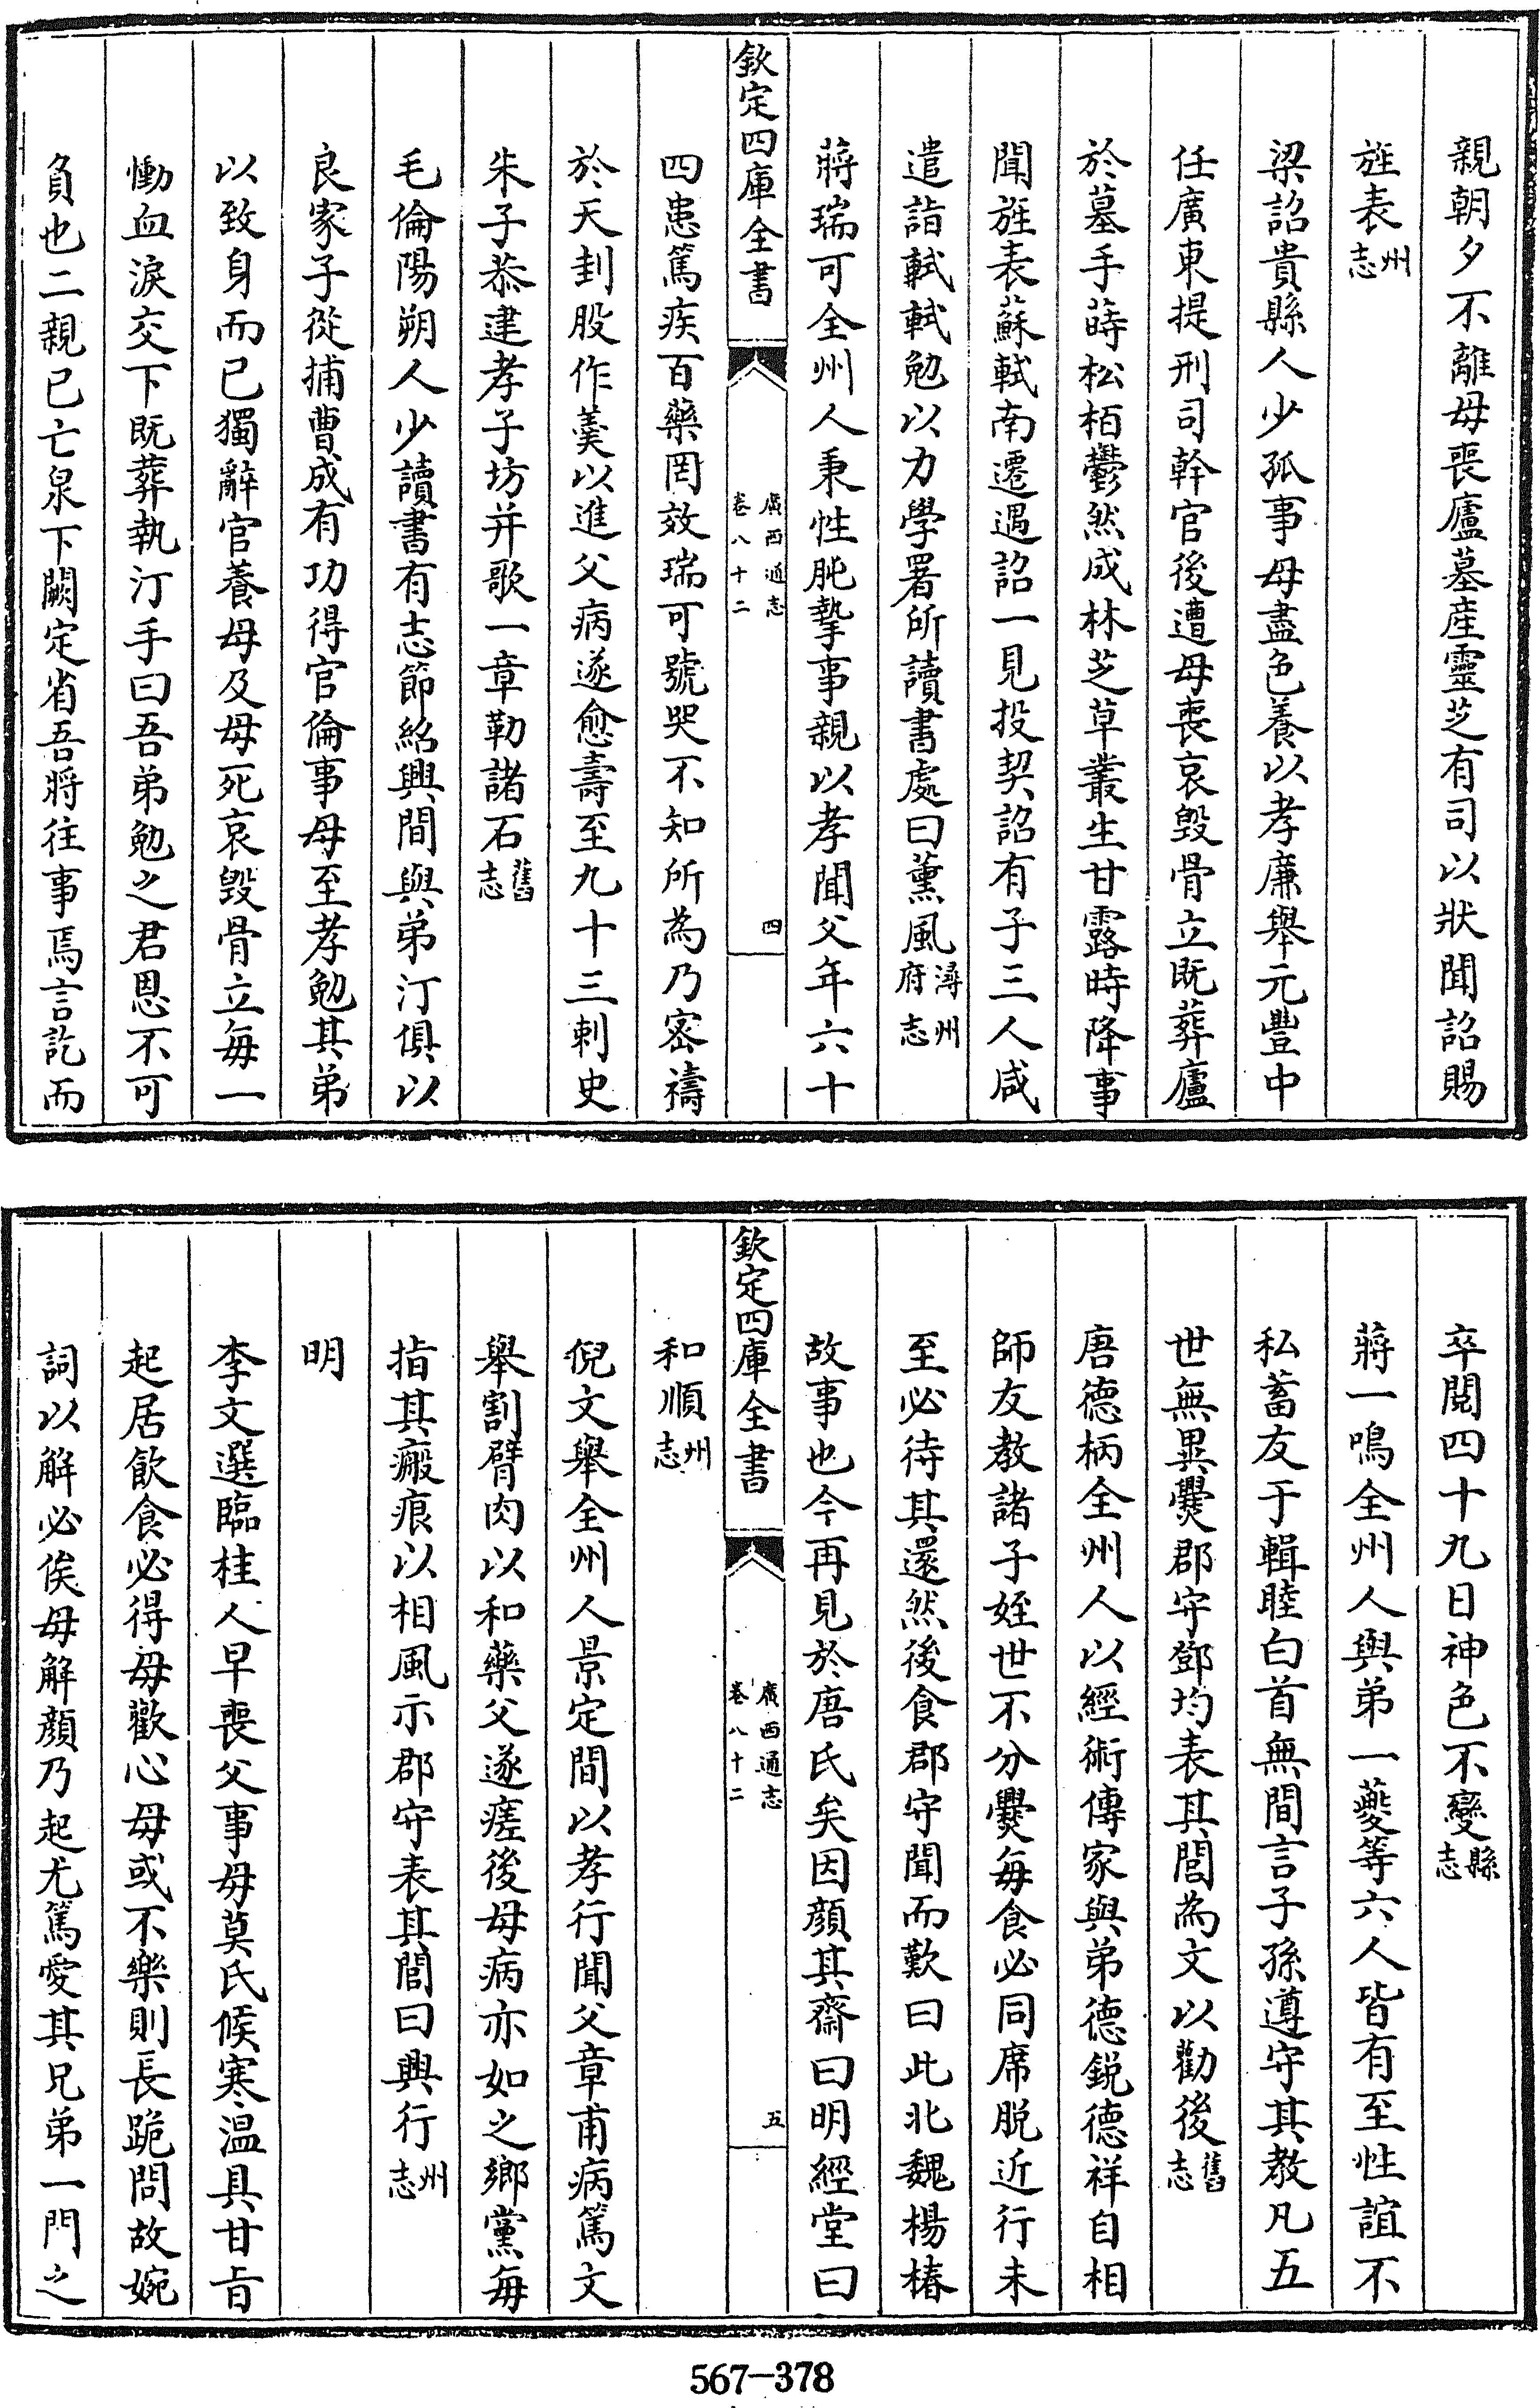 親朝夕不離母喪廬墓産靈芝有司以狀聞詔賜
旌表州志
梁詔貴縣人少孤事母盡色養以孝廉舉元豐中
任廣東提刑司幹官後遭母喪哀毀骨立既葬廬
於墓手蒔松栢鬱然成林芝草叢生甘露時降事
聞旌表蘇軾南遷遇詔一見投契詔有子三人咸
遣詣軾軾勉以力學署所讀書處曰薰風潯州府志
蔣瑞可全州人秉性肫摯事親以孝聞父年六十
欽定四庫全書
廣西通志
卷八十二
四
四患篤疾百藥罔效瑞可號哭不知所為乃密禱
於天刲股作羮以進父病遂愈壽至九十三刺史
朱子恭建孝子坊并歌一章勒諸石舊志
毛倫陽朔人少讀書有志節紹興間與弟汀俱以
良家子從捕曹成有功得官倫事母至孝勉其弟
以致身而已獨辭官養母及母死哀毀骨立每一
慟血淚交下既葬執汀手曰吾弟勉之君恩不可
負也二親已亡泉下闕定省吾將往事焉言訖而
卒閱四十九日神色不變縣志
蔣一鳴全州人與弟一夔等六人皆有至性誼不
私蓄友于輯睦白首無間言子孫遵守其教凡五
世無異爨郡守鄧均表其閭為文以勸後舊志
唐德柄全州人以經術傳家與弟德鋭德祥自相
師友教諸子姪世不分爨每食必同席脱近行未
至必待其還然後食郡守聞而歎曰此北魏楊椿
故事也今再見於唐氏矣因顔其齋曰明經堂曰
欽定四庫全書
廣西通志
卷八十二
五
和順州志
倪文舉全州人景定間以孝行聞父章甫病篤文
舉割臂肉以和藥父遂瘥後母病亦如之鄉黨每
指其瘢痕以相風示郡守表其閭曰興行州志
明
李文選臨桂人早喪父事母莫氏候寒温具甘旨
起居飲食必得母歡心母或不樂則長跪問故婉
詞以解必俟母解顔乃起尤篤愛其兄弟一門之
567-378